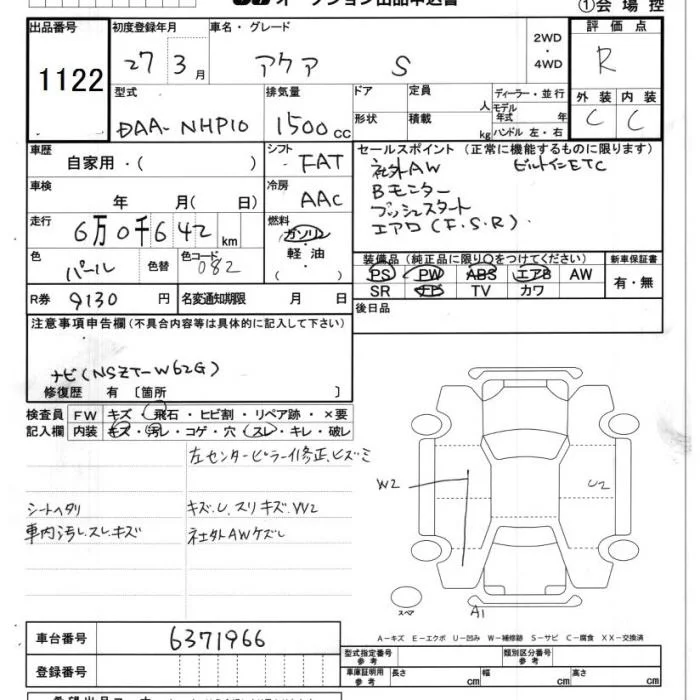 オークション出品申込書
①会場控
出品番号 初度登録年月 車名・グレード 2WD・4WD 評価点
1122 27 3月 アクア S R
型式 排気量 ドア 定員 人 ディーラー・並行 外装 内装
DAA-NHP10 1500cc 形状 積載 kg モデル年式 年 ハンドル 左・右 C C
車歴 自家用・( ) シフト FAT
セールスポイント(正常に機能するものに限ります)
社外AW ビルトインETC
Bモニター
プッシュスタート
エアロ(F.S.R)
車検 年 月( 日) 冷房 AAC
走行 6万0千642km 燃料 ガソリン・軽油・( )
色 パール 色替 色コード 082
装備品(純正品に限り○をつけてください) 新車保証書
PS PW ABS エアB AW 有・無
SR TV カワ
R券 9130円 名変通知期限 月 日
後日品
注意事項申告欄(不具合内容等は具体的に記入して下さい)
ナビ(NSZT-W62G)
修復歴 有〔箇所 〕
検査員記入欄
FW キズ・飛石・ヒビ割・リペア跡・×要
内装 キズ・汚レ・コゲ・穴・スレ・キレ・破レ
左センターピラー修正、ヒズミ
シートヘタリ キズ.U.スリキズ.W2
車内汚レ.スレ.キズ 社外AWケズレ
W2
U2
A1
スペア
A-キズ E-エクボ U-凹み W-補修跡 S-サビ C-腐食 XX-交換済
車台番号 6371966
登録番号
型式指定番号 参考 類別区分番号 参考
車庫証明用 参考 長さ cm 幅 cm 高さ cm